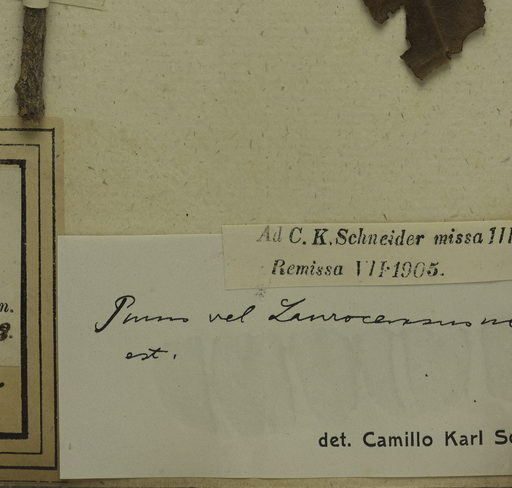 Ad C. K. Schneider missa III
Remissa VII·1905.
n.
Prunus vel Laurocerasus
est.
det. Camillo Karl